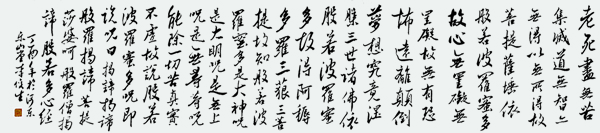 老死盡無苦
集滅道無智亦
無得以無所得故
菩提薩埵依
般若波羅蜜多
故心無罣礙無
罣礙故無有恐
怖遠離顛倒
夢想究竟涅
槃三世諸佛依
般若波羅蜜
多故得阿耨
多羅三藐三菩
提故知般若波
羅蜜多是大神咒
是大明咒是無上
咒是無等等咒
能除一切苦真實
不虛故說般若
波羅蜜多咒即
說咒曰揭諦揭諦
般羅揭諦菩提
莎婆呵般羅僧揭
諦般若多心經
丁酉年於河東